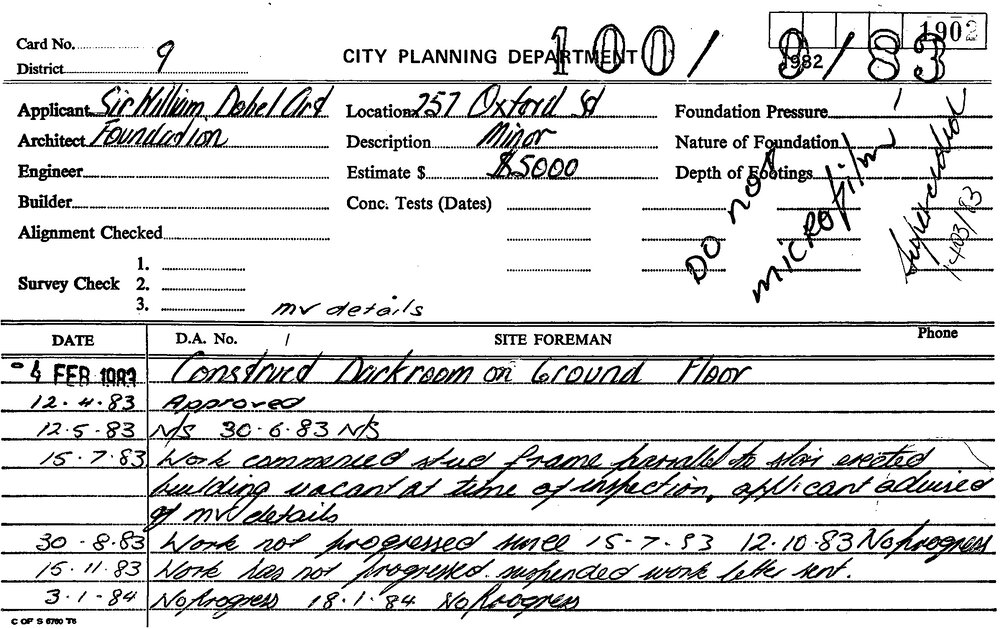 1902
Card No. 9
District
CITY PLANNING DEPARTMENT 100 / 9 / 83
1982
Applicant Sir William Dobel Art Location 257 Oxford St Foundation Pressure
Architect Foundation Description Minor Nature of Foundation
Engineer Estimate $ $5000 Depth of Footings
Builder Conc. Tests (Dates)
Alignment Checked
DO NOT
microfilm
Superceded
1403/83
1.
Survey Check 2.
3.
mv details
DATE D.A. No. / SITE FOREMAN Phone
-4 FEB 1983 Construct Darkroom on Ground Floor
12.4.83 Approved
12.5.83 N/S 30.6.83 N/S
15.7.83 Work commenced stud frame parralel to stair erected
building vacant at time of inspection, applicant advised
of mv details
30.8.83 Work not progressed since 15-7-83 12.10.83 No progress
15.11.83 Work has not progressed. suspended work letter sent.
3.1.84 No Progress 18.1.84 No Progress
C OF S 6760 T6